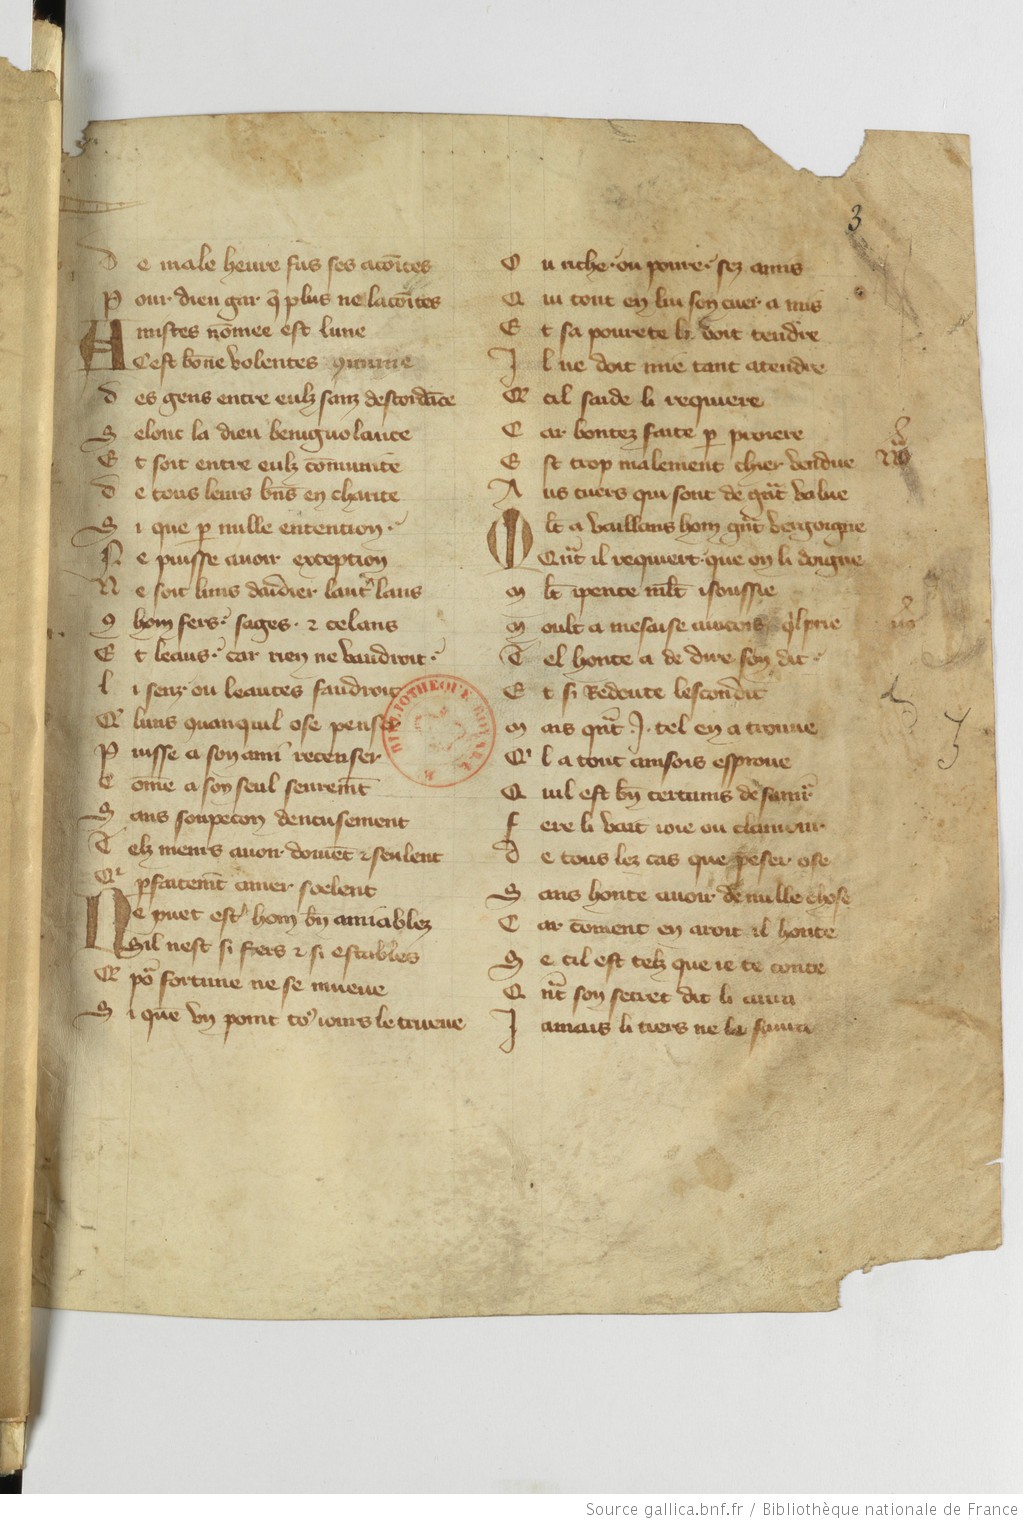 3
D e male heure fus ses acoı̃tes
P our dieu gar q̃ plus ne lacoı̃tes
A mistes nõmee est lune
Cest bõne volentes
D es gens entre eulz sanz descordãce
S elonc la dieu beniguolance
E t soit entre eulz cõmunite
D e tous leurs bñs en charite
S i que p nulle entention
N e puisse auoir exception
N e soit luns daidier lautˀ laus
9 hom fers sages ⁊ celans
E t leaus car rien ne vaudroit
L i senz ou leautes faudroit
Qˀ luns quanquil ose penser
P uisse a son ami recenser
C ome a son seul seuremẽt
S ans soupecon dencusement
T elz meurs auoir doiuẽt ⁊ seulent
Qˀ pfaitemẽt amer soelent
N e puet estˀ hom bñ amiablez
Sil nest si fers ⁊ si estables
Qˀ põ fortune ne se mueue
S i que vn point toˀ iours le trueue
O u riche ou poure sez amis
Q ui tout en lui son cuer a mis
E t sa pourete li doit tendre
I l ne doit mie tant atendre
Qˀ cil saide li requiere
C ar bontez faite p proiere
E st trop malement chier vendue
A us cuers qui sont de grãt value
M lt a vaillans hom grãt vergoigne
Qãt il requiert que on li doigne
M lt ipense mlt isoussie
M oult a mesaise aincois qˀl prie
T el honte a de dire son dit
E t si Redoute lescondit
M ais qñt .I. tel en a trouue
Qˀ l a tout ainsois esproue
Q uil est bñ certains de samˀ
F ere li vait ioie ou clamour
D e tous lez cas que peser ose
S ans honte auoir de nulle chose
C ar cõment en aroit il honte
S e cil est telz que ie te conte
Q ñt son secret dit li aura
I amais li tiers ne la saura
BIBLIOTHEQUE ROYALE
Source gallica.bnf.fr / Bibliothèque nationale de France